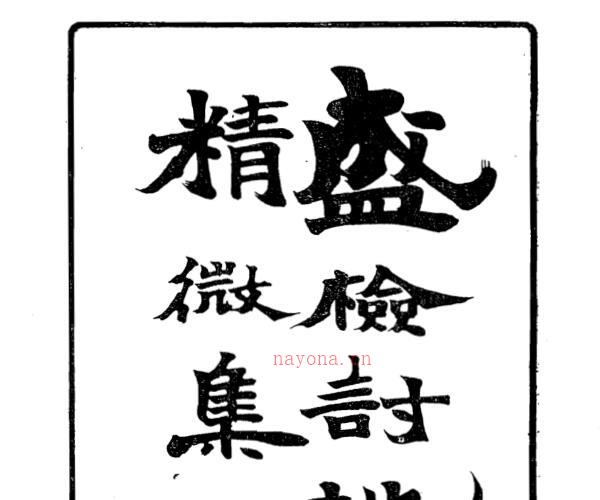 盛檢討
精微集
nayona.cn